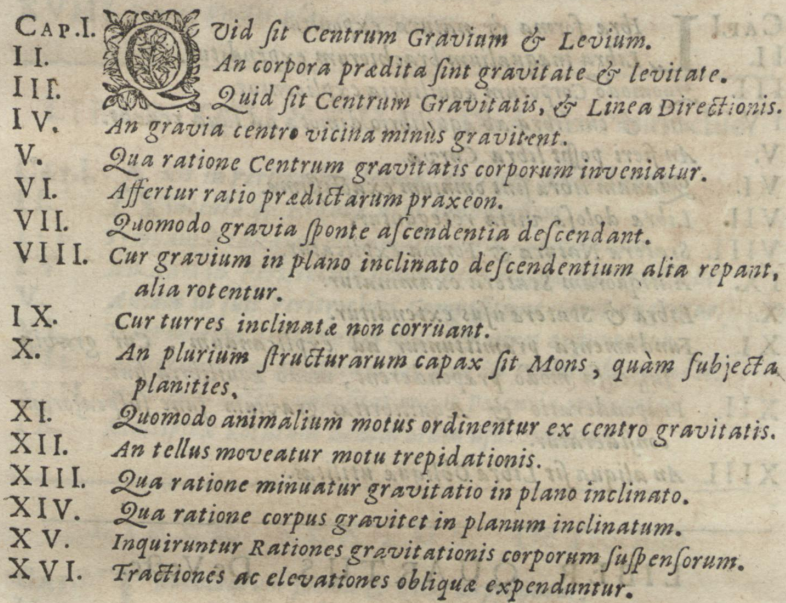 CAP.I. QVid ſit Centrum Gravium & Levium.
II. An corpora prædita ſint gravitate & levitate.
III. Quid ſit Centrum Gravitatis, & Linea Directionis.
IV. An gravia centro vicina minùs gravitent.
V. Qua ratione Centrum gravitatis corporum inveniatur.
VI. Affertur ratio prædictarum praxeon.
VII. Quomodo gravia ſponte aſcendentia deſcendant.
VIII. Cur gravium in plano inclinato deſcendentium alia repant,
alia rotentur.
IX. Cur turres inclinatæ non corruant.
X. An plurium ſtructurarum capax ſit Mons, quàm ſubjecta
planities.
XI. Quomodo animalium motus ordinentur ex centro gravitatis.
XII. An tellus moveatur motu trepidationis.
XIII. Qua ratione minuatur gravitatio in plano inclinato.
XIV. Qua ratione corpus gravitet in planum inclinatum.
XV. Inquiruntur Rationes gravitationis corporum ſuſpenſorum.
XVI. Tractiones ac elevationes obliquæ expenduntur.